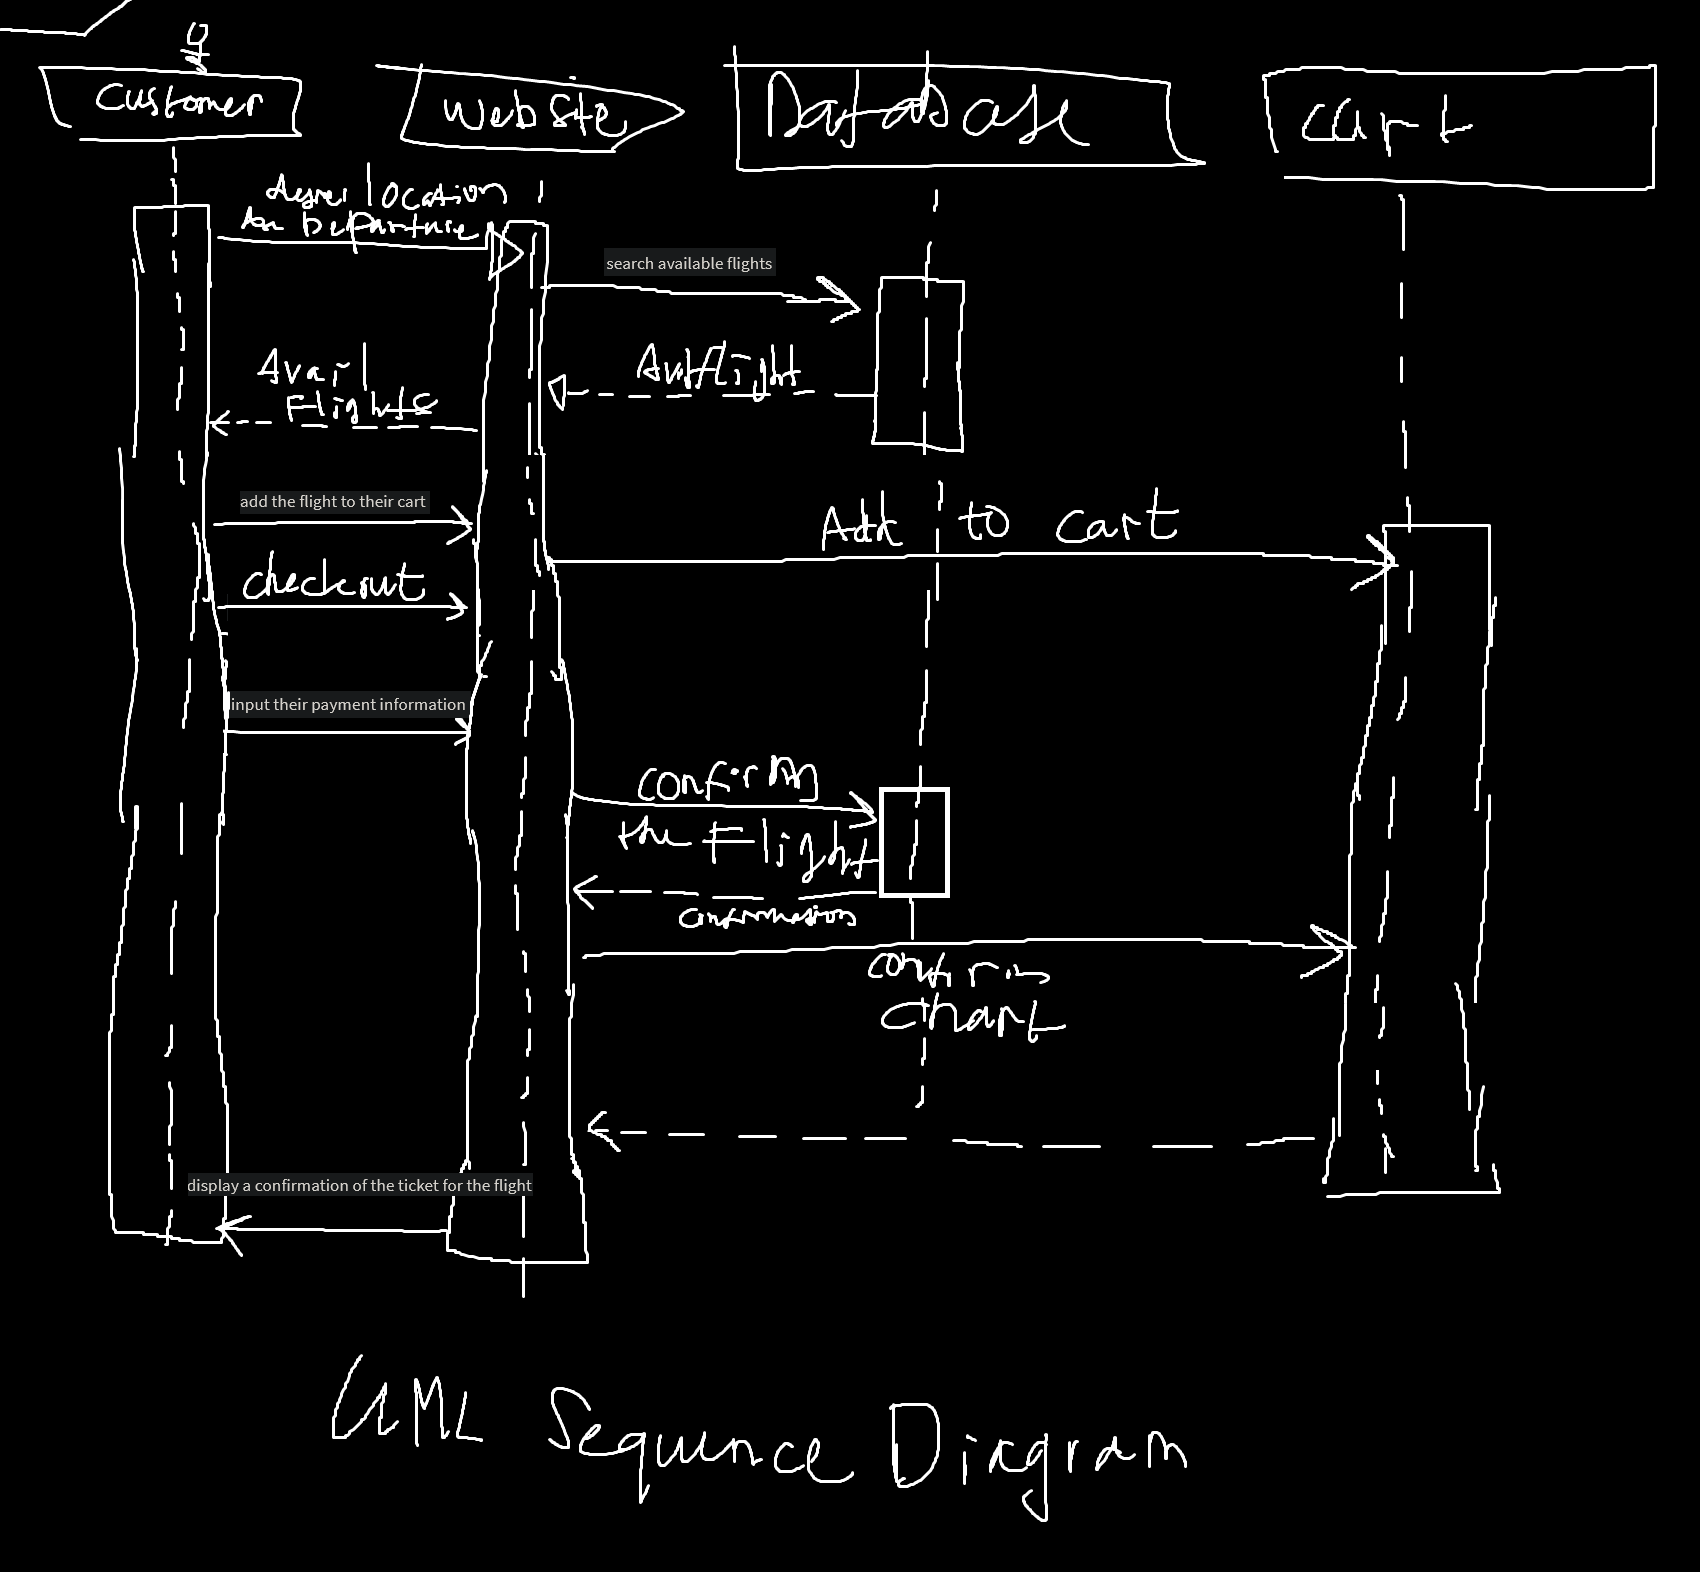 Customer
Website
Database
Cart
location
Departure
search available flights
Avail
Flights
Avlflight
add the flight to their cart
Add to cart
checkout
input their payment information
confirm
the Flight
confirmation
confirm
Chart
display a confirmation of the ticket for the flight
UML Sequence Diagram